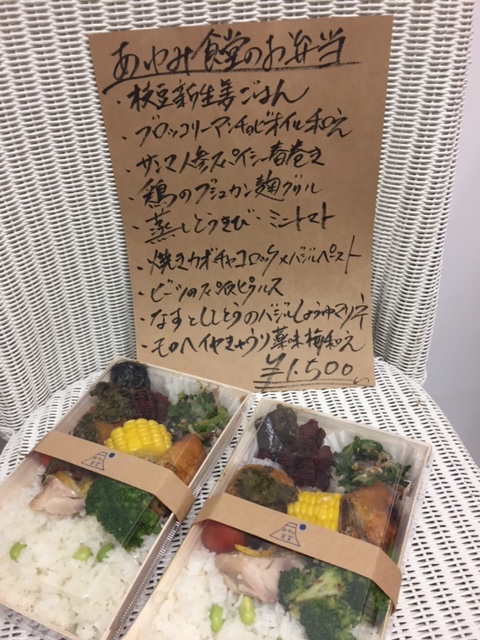 あゆみ食堂のお弁当
・枝豆新生姜ごはん
・ブロッコリーアンチョビオイル和え
・サンマ人参スパイシー春巻き
・鶏のブシュカン麹グリル
・蒸しとうきび・ミニトマト
・焼きカボチャコロッケ×バジルペースト
・ビーツのスパイスピクルス
・なすとししとうのバジルしょうゆマリネ
・モロヘイヤきゅうり薬味梅和え
¥1.500
食堂
食堂